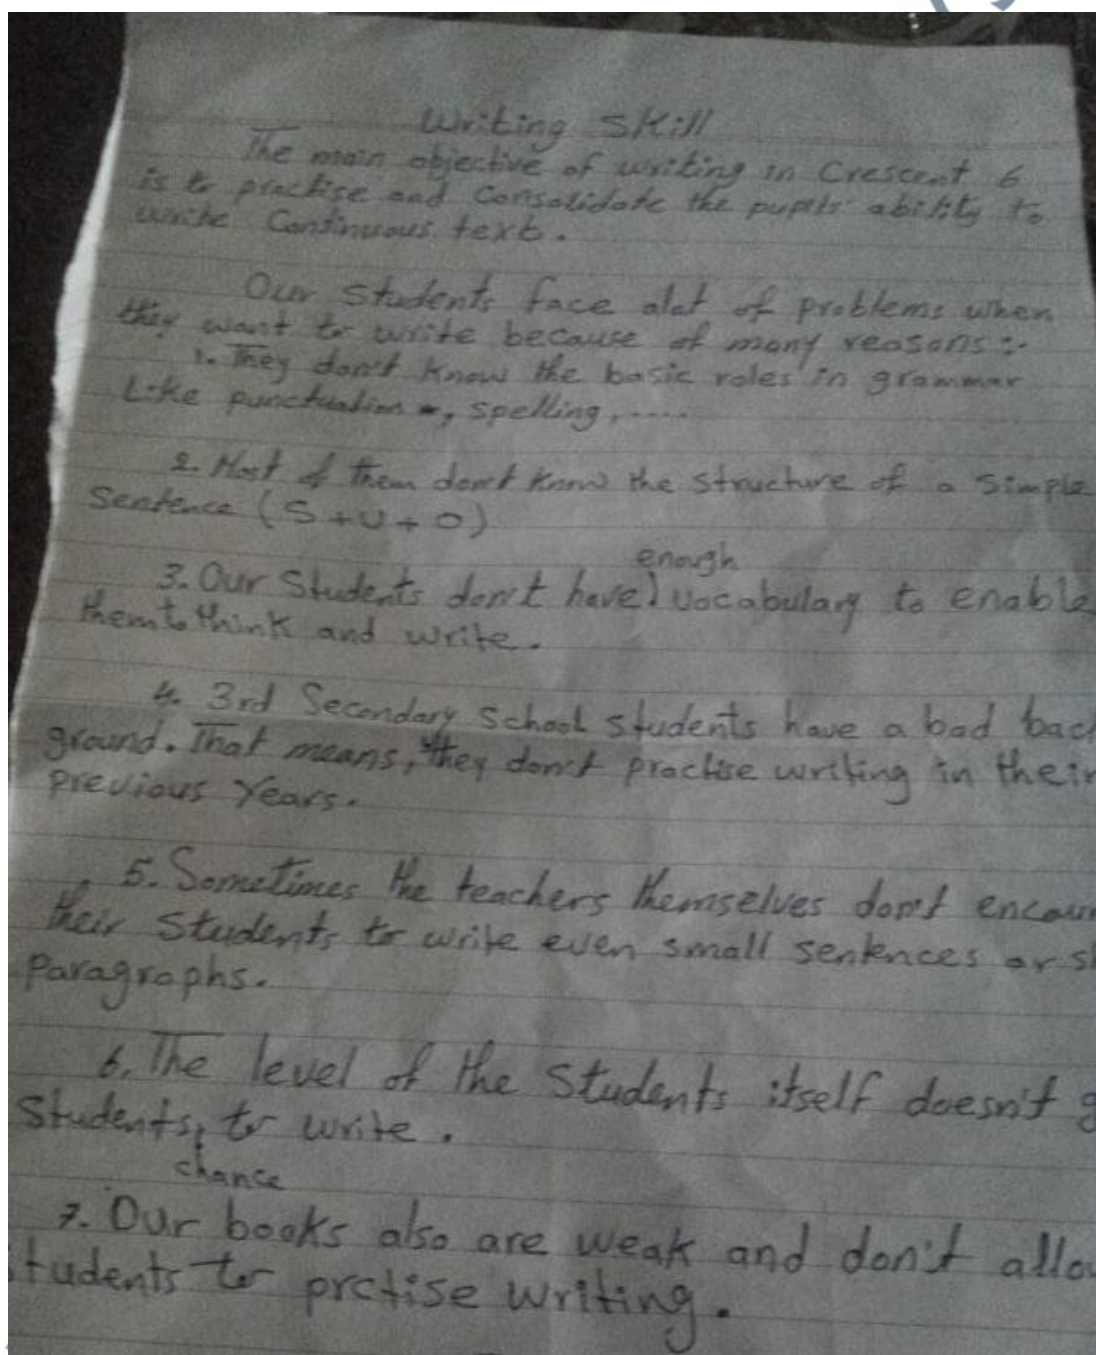 Writing Skill
The main objective of writing in Crescent 6
is to practise and Consolidate the pupils' ability to
write Continuous text.
Our students face alot of problems when
they want to write because of many reasons :-
1. They don't know the basic roles in grammar
Like punctuation , spelling, .....
2. Most of them don't know the structure of a simple
Sentence (S+U+O)
enough
3. Our Students don't have vocabulary to enable
them to think and write.
4. 3rd Secondary School students have a bad back
ground. That means, they don't practise writing in their
previous Years.
5. Sometimes the teachers themselves don't encour
their Students to write even small sentences or sh
Paragraphs.
6. The level of the Students itself doesn't g
Students to write.
chance
7. Our books also are weak and don't allow
students to prctise writing.